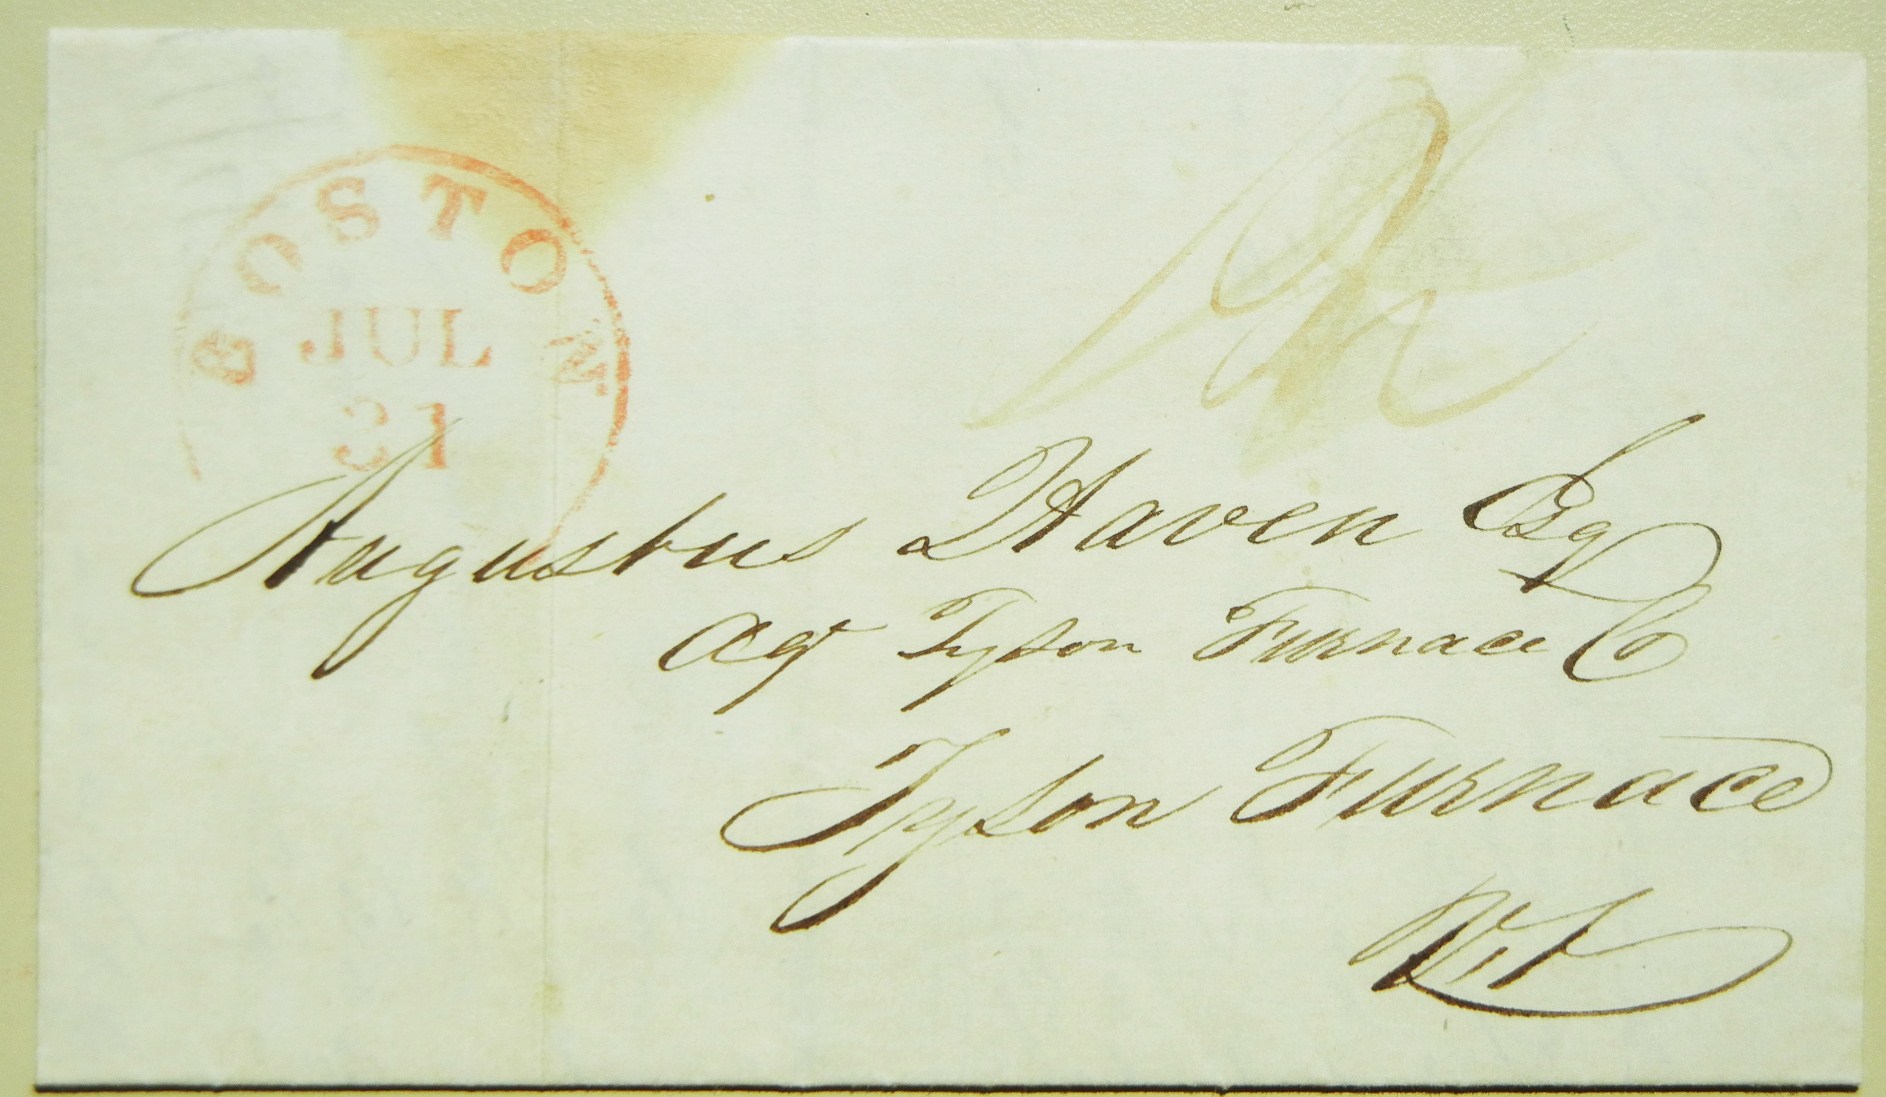 BOSTON
JUL
31
Augustus Haven Esq
Agt Tyson Furnace Co
Tyson Furnace
Vt